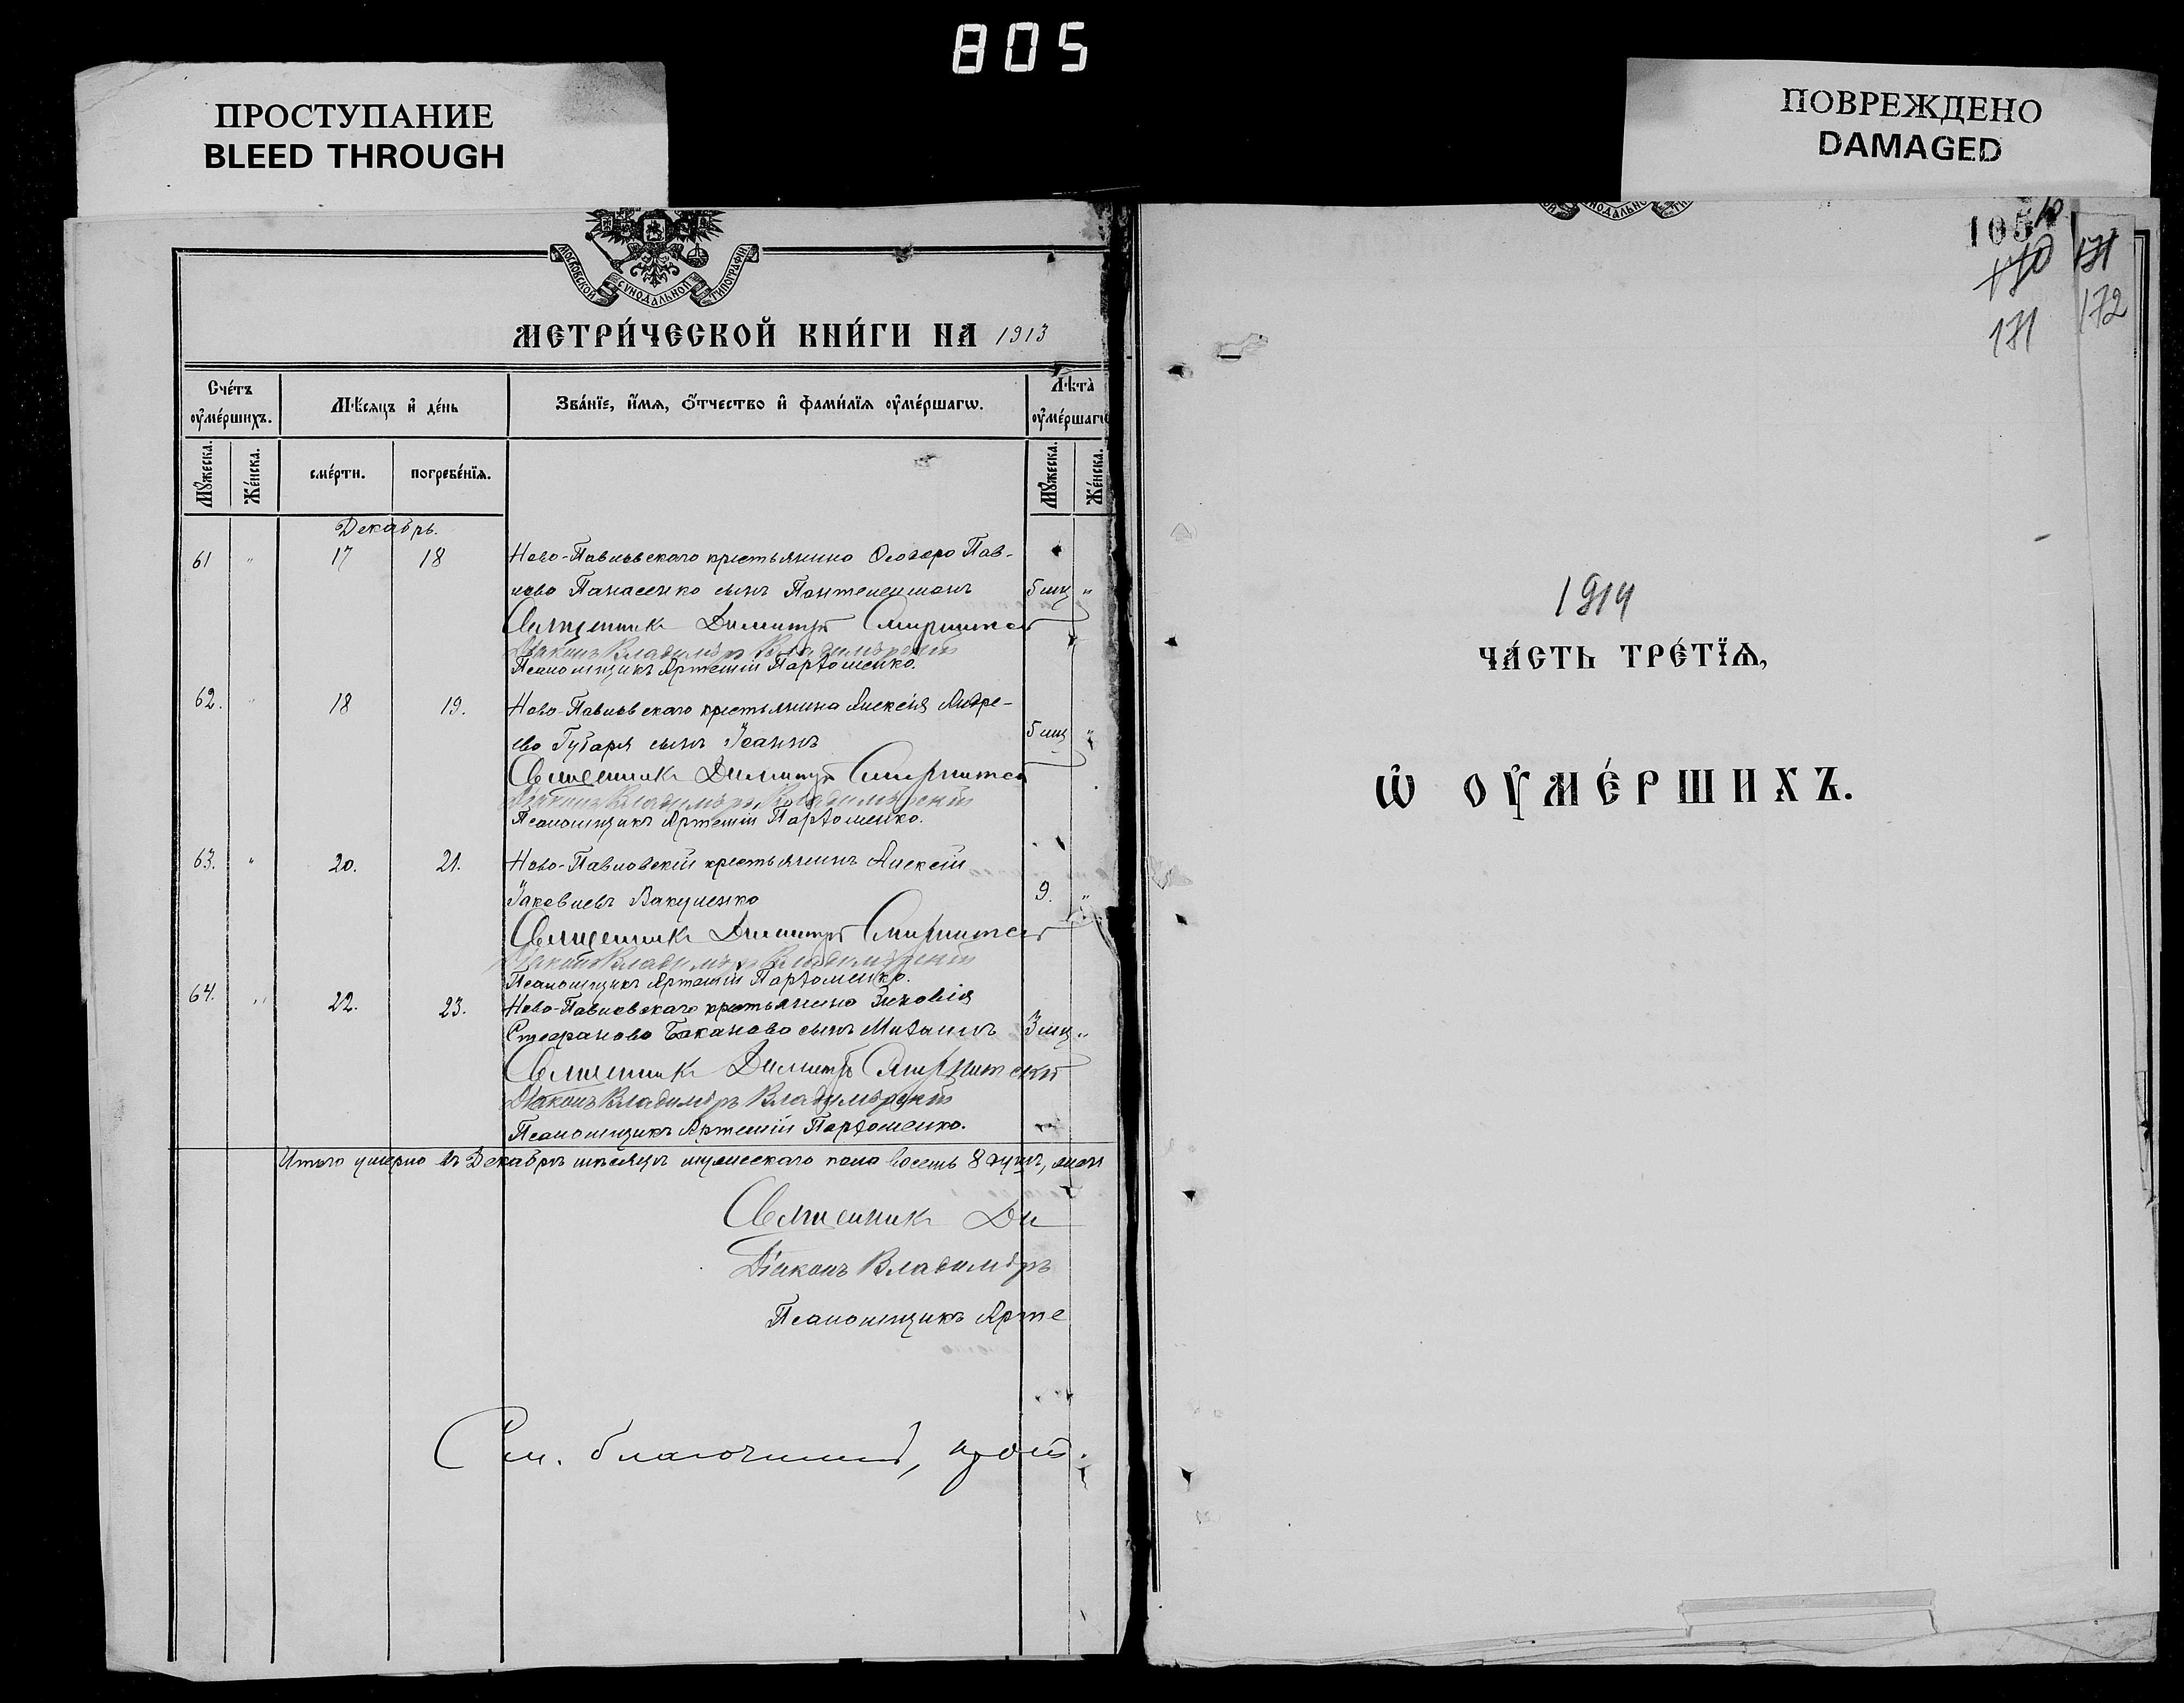 805
ПРОСТУПАНИЕ
BLEED THROUGH
ПОВРЕЖДЕНО
DAMAGED
МОСКОВСКОЙ СѴНОДАЛЬНОЙ ТИПОГРАФІИ
МЕТРИ́ЧЕСКОЙ КНИ́ГИ НА 1913
Сче́тъ оу҆ме́ршихъ.
Мѣ́сяцъ и҆ де́нь
Зва́нїе, и҆́мѧ, ѻ҆́тчество и҆ фами́лїѧ оу҆ме́ршагѡ.
Лѣта̀ оу҆ме́ршагѡ
Мꙋ́жеска.
Же́нска.
сме́рти.
погребе́нїѧ.
Мꙋ́жеска.
Же́нска.
Декабрь.
61 " 17 18 Ново-Павловскаго крестьянина Ѳеодора Пав-
лова Панасенко сынъ Пантелеимонъ 5 мц "
Священникъ Димитрій
Діаконъ Владиміръ Владимірскій
Псаломщикъ Артемій Пархоменко.
62. " 18 19. Ново-Павловскаго крестьянина Алексія Андре-
ева Губаря сынъ Іоаннъ 5 мц "
Священникъ Димитрій
Діаконъ Владиміръ Владимірскій
Псаломщикъ Артемій Пархоменко.
63. " 20. 21. Ново-Павловскій крестьянинъ Алексій
Іаковлевъ Вакуленко 9. "
Священникъ Димитрій
Діаконъ Владиміръ Владимірскій
Псаломщикъ Артемій Пархоменко.
64. " 22. 23. Ново-Павловскаго крестьянина Зиновія
Стефанова Баканова сынъ Михаилъ 3 мц "
Священникъ Димитрій
Діаконъ Владиміръ Владимірскій
Псаломщикъ Артемій Пархоменко.
Итого умерло въ Декабрѣ мѣсяцѣ мужескаго пола восемь 8 душъ,
Священникъ Ди
Діаконъ Владиміръ
Псаломщикъ Арте
См. благочинный, прот.
СѴНОДАЛЬНО
105
170 171
171 172
1914
ЧА́СТЬ ТРЕ́ТЇѦ,
Ѡ҆ ОУ҆МЕ́РШИХЪ.